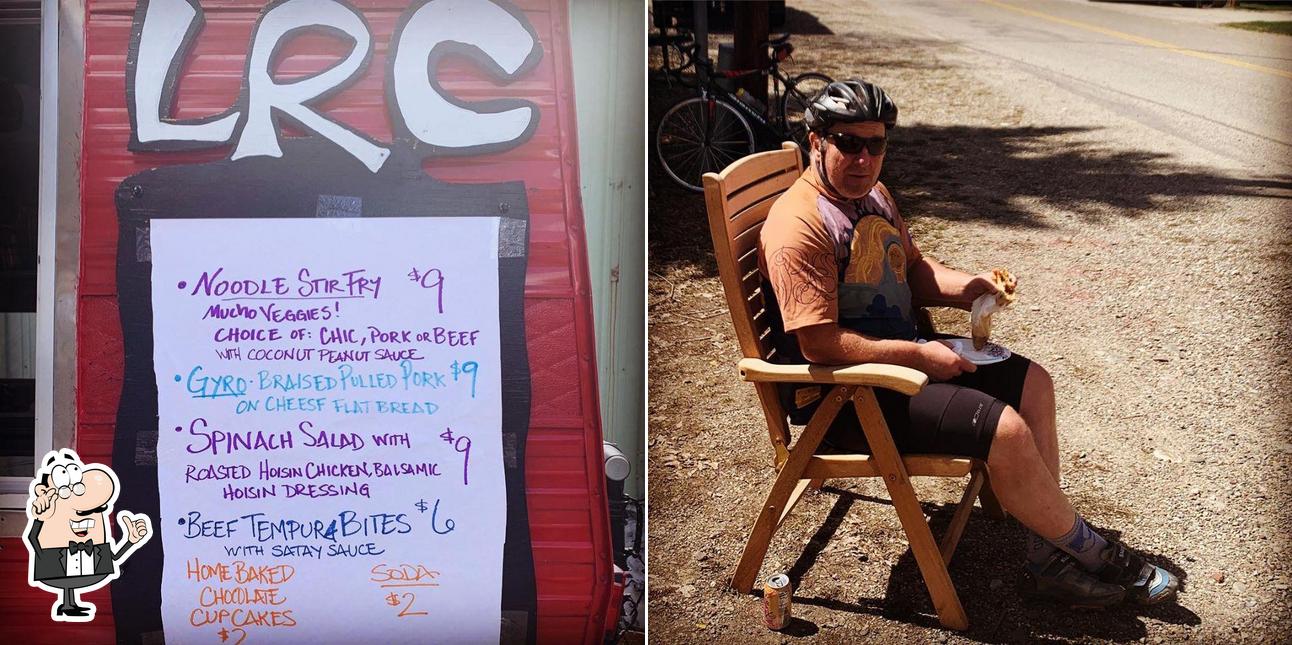 LRC
• NOODLE STIR FRY $9
MUCHO VEGGIES!
CHOICE OF: CHIC, PORK OR BEEF
WITH COCONUT PEANUT SAUCE
• GYRO - BRAISED PULLED PORK $9
ON CHEESE FLAT BREAD
• SPINACH SALAD WITH $9
ROASTED HOISIN CHICKEN, BALSAMIC
HOISIN DRESSING
• BEEF TEMPURA BITES $6
WITH SATAY SAUCE
HOME BAKED
CHOCOLATE
CUPCAKES
$2
SODA
$2